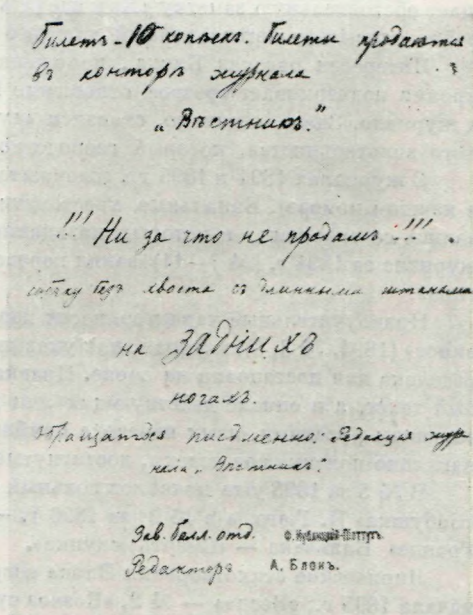 Билетъ - 10 копѣекъ. Билеты продаются
въ конторѣ журнала
„Вѣстникъ."
!!! Ни за что не продамъ !!!
собаку безъ хвоста съ длинными штанами
на ЗАДНИХЪ
ногахъ.
Обращаться письменно: Редакция жур
нала „Вѣстникъ".
Зав. белл. отд. Ф. Кублицкій-Піоттухъ
Редакторъ А. Блокъ.